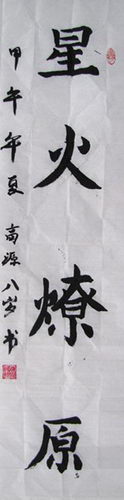 星火燎原
甲午年夏 高源八岁书